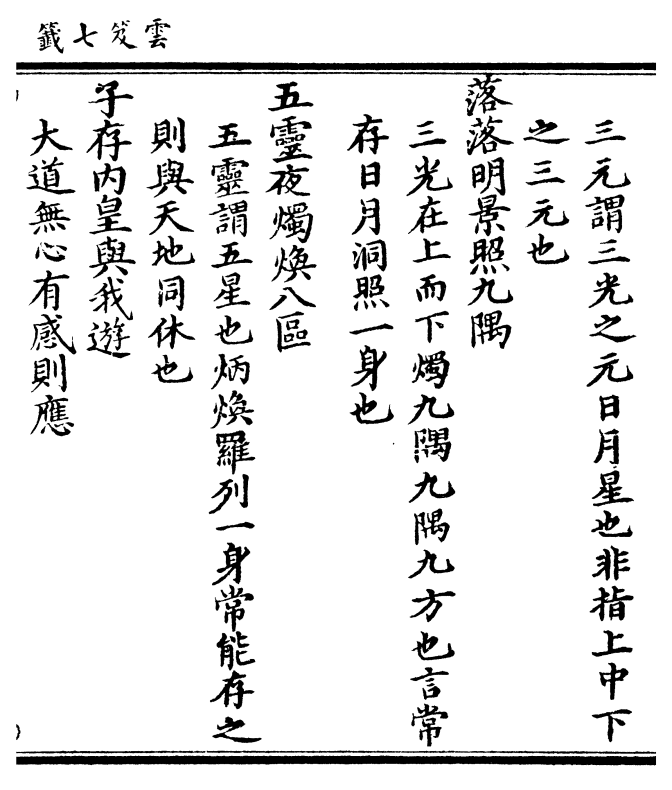 雲笈七籤
三元謂三光之元日月星也非指上中下
之三元也
落落明景照九隅
三光在上而下燭九隅九隅九方也言常
存日月洞照一身也
五靈夜燭煥八區
五靈謂五星也炳煥羅列一身常能存之
則與天地同休也
子存內皇與我遊
大道無心有感則應